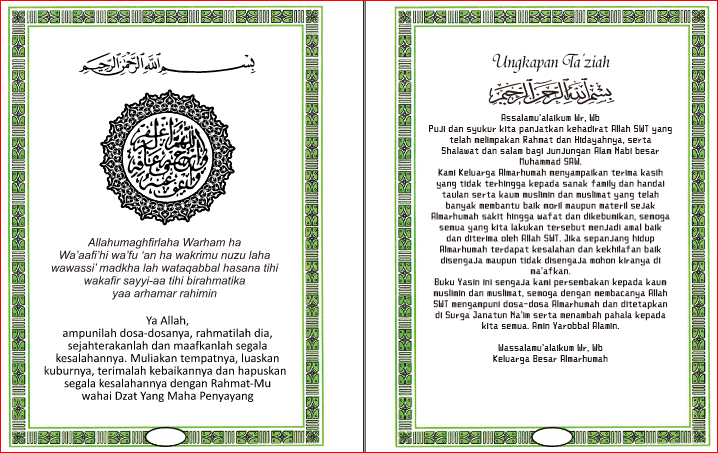 بِسْمِ اللهِ الرَّحْمٰنِ الرَّحِيْمِ
Allahumaghfirlaha Warham ha
Wa'aafi'hi wa'fu 'an ha wakrimu nuzu laha
wawassi' madkha lah wataqabbal hasana tihi
wakafir sayyi-aa tihi birahmatika
yaa arhamar rahimin
Ya Allah,
ampunilah dosa-dosanya, rahmatilah dia,
sejahterakanlah dan maafkanlah segala
kesalahannya. Muliakan tempatnya, luaskan
kuburnya, terimalah kebaikannya dan hapuskan
segala kesalahannya dengan Rahmat-Mu
wahai Dzat Yang Maha Penyayang
Ungkapan Ta'ziah
بِسْمِ اللهِ الرَّحْمٰنِ الرَّحِيْمِ
Assalamu'alaikum Wr, Wb
Puji dan syukur kita panjatkan kehadirat Allah SWT yang
telah melimpakan Rahmat dan Hidayahnya, serta
Shalawat dan salam bagi Junjungan Alam Nabi besar
Muhammad SAW.
Kami Keluarga Almarhumah menyampaikan terima kasih
yang tidak terhingga kepada sanak family dan handai
taulan serta kaum muslimin dan muslimat yang telah
banyak membantu baik moril maupun materil sejak
Almarhumah sakit hingga wafat dan dikebumikan, semoga
semua yang kita lakukan tersebut menjadi amal baik
dan diterima oleh Allah SWT. Jika sepanjang hidup
Almarhumah terdapat kesalahan dan kekhilafan baik
disengaja maupun tidak disengaja mohon kiranya di
ma'afkan.
Buku Yasin ini sengaja kami persembakan kepada kaum
muslimin dan muslimat, semoga dengan membacanya Allah
SWT mengampuni dosa-dosa Almarhumah dan ditetapkan
di Surga Janatun Na'im serta menambah pahala kepada
kita semua. Amin Yarobbal Alamin.
Wassalamu'alaikum Wr, Wb
Keluarga Besar Almarhumah